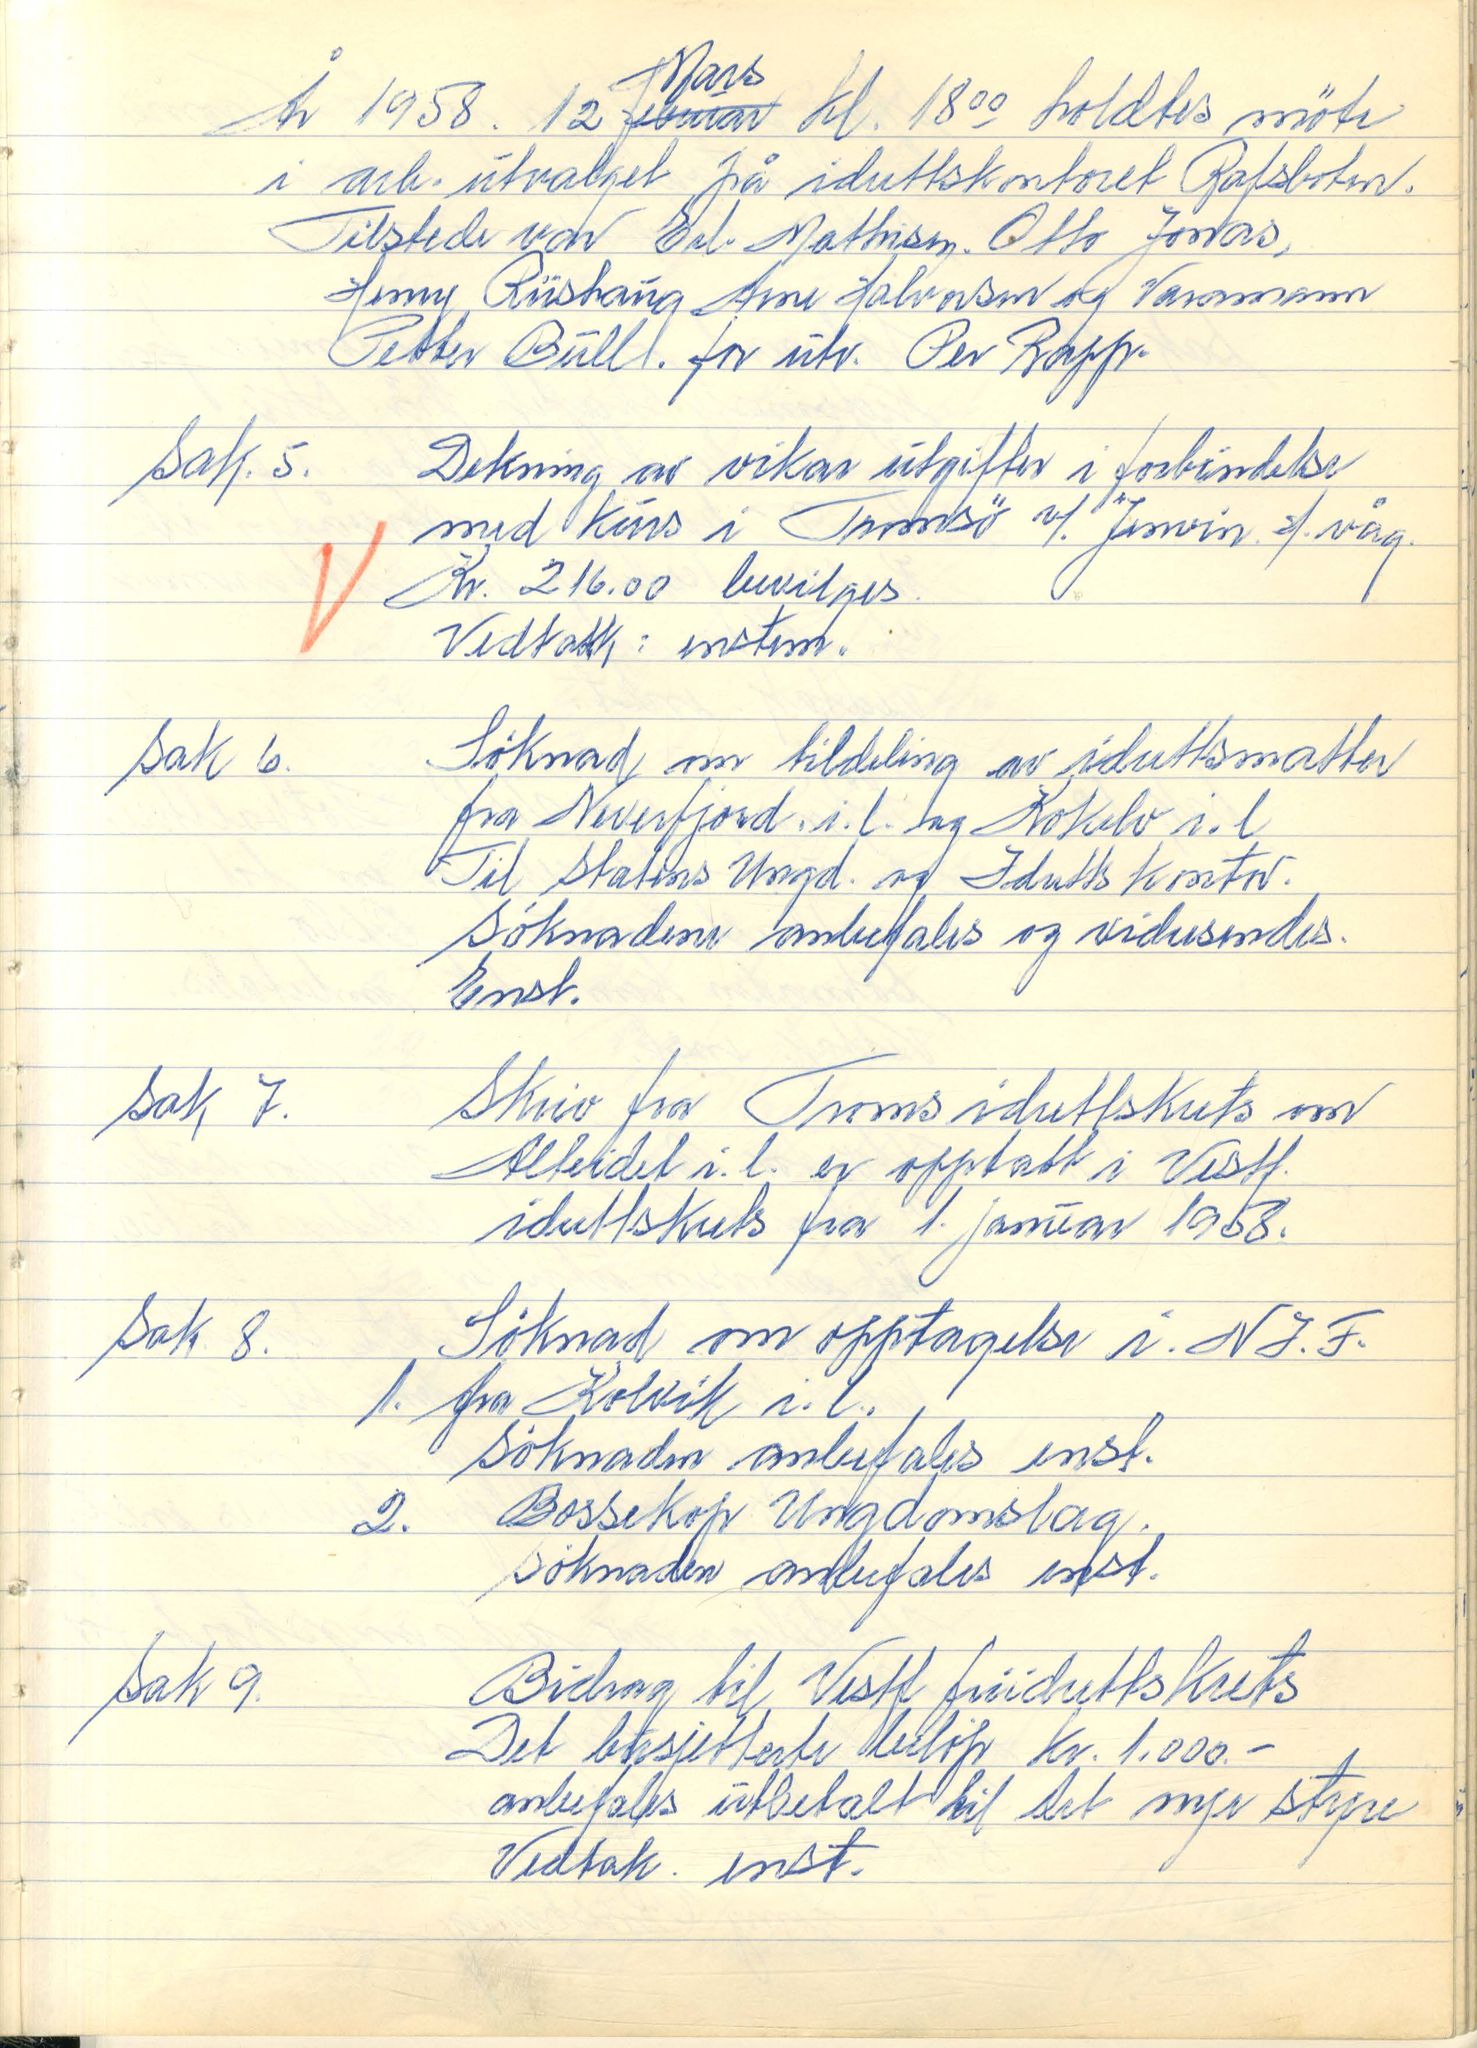 År 1958. 12 februar Mars kl. 1800 holdtes möte
i arb. utvalget på idrettskontoret Rafsbotn.
Tilstede var Erl. Mathisen. Otto Jonas,
Henry Riishaug Arne Halvorsen og Varamann
Petter Bull. for utv. Per Rapp.
Sak. 5. Dekning av vikar utgifter i forbindelse
med kurs i Tromsö v/. Jenvin. s/. våg.
Kr. 216.00 bevilges.
Vedtatt: enstem.
V
Sak 6. Söknad om tildeling av idrettsmatter
fra Neverfjord. i.l. og Kokelv i.l
Til Statens Ungd. og Idretts kontor.
Söknadene anbefales og videresendes.
Enst.
Sak 7. Skriv fra Troms idrettskrets om
Alteidet i.l. er opptatt i Vestf.
idrettskrets fra 1. januar 1958.
Sak 8. Söknad om opptagelse i. N I. F.
1. fra Kolvik i.l.
Söknaden anbefales enst.
2. Bossekop Ungdomslag.
Söknaden anbefales enst.
Sak 9. Bidrag til Vestf friidrettskrets
Det busjetterte belöp kr. 1.000.-
anbefales utbetalt til det nye styre
Vedtak. enst.